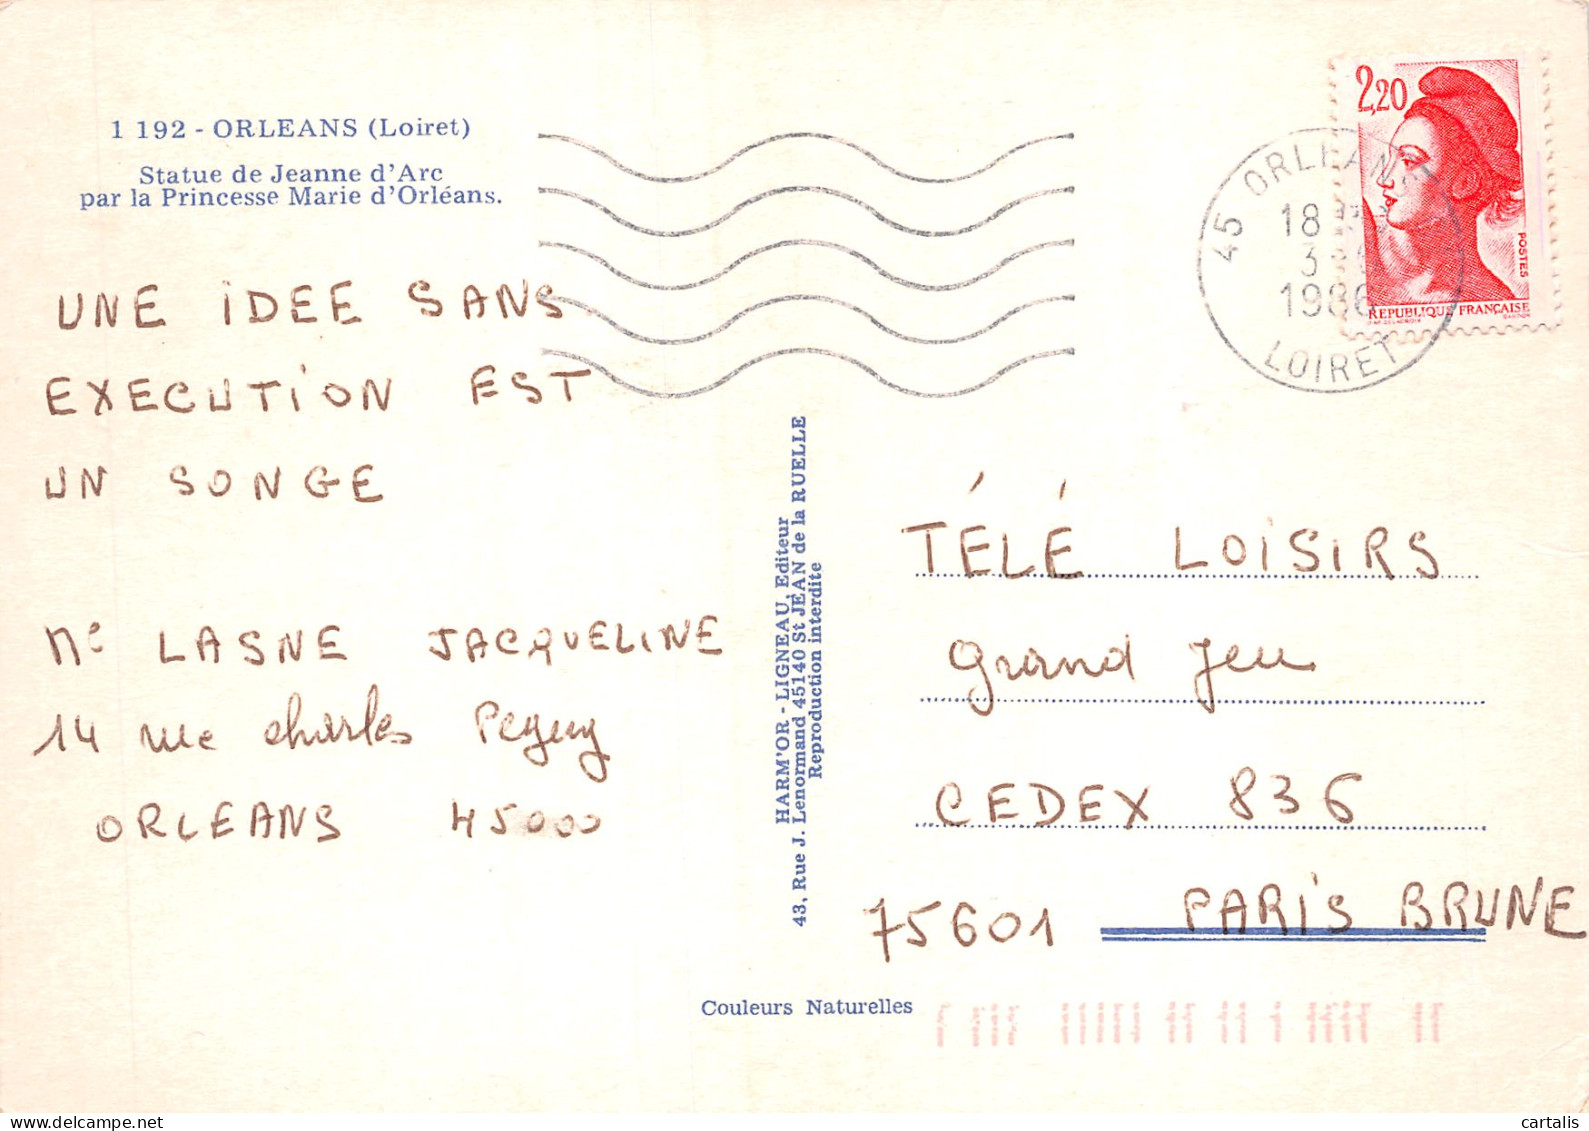 1 192 - ORLEANS (Loiret)
Statue de Jeanne d'Arc
par la Princesse Marie d'Orléans.
UNE IDEE SANS
EXECUTION EST
UN SONGE
Me LASNE JACQUELINE
14 rue charles Peguy
ORLEANS 45000
HARM'OR - LIGNEAU, Editeur
43, Rue J. Lenormand 45140 St JEAN de la RUELLE
Reproduction interdite
Couleurs Naturelles
2,20
POSTES
REPUBLIQUE FRANÇAISE
45 ORLEANS
18
3
1986
LOIRET
TÉLÉ LOISIRS
Grand Jeu
CEDEX 836
75601 PARIS BRUNE
delcampe.net
cartalis